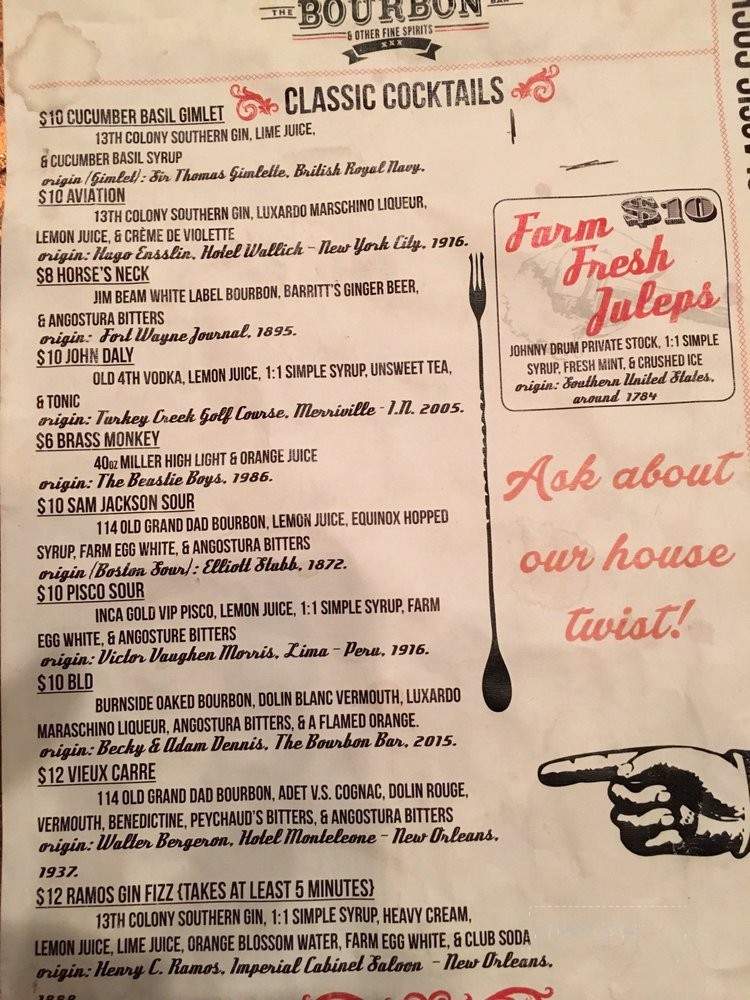 THE BOURBON BAR
& OTHER FINE SPIRITS
XXX
CLASSIC COCKTAILS
$10 CUCUMBER BASIL GIMLET
13TH COLONY SOUTHERN GIN, LIME JUICE,
& CUCUMBER BASIL SYRUP
origin (Gimlet): Sir Thomas Gimlette, British Royal Navy.
$10 AVIATION
13TH COLONY SOUTHERN GIN, LUXARDO MARSCHINO LIQUEUR,
LEMON JUICE, & CRÈME DE VIOLETTE
origin: Hugo Ensslin, Hotel Wallich - New York City, 1916.
$8 HORSE'S NECK
JIM BEAM WHITE LABEL BOURBON, BARRITT'S GINGER BEER,
& ANGOSTURA BITTERS
origin: Fort Wayne Journal, 1895.
$10 JOHN DALY
OLD 4TH VODKA, LEMON JUICE, 1:1 SIMPLE SYRUP, UNSWEET TEA,
& TONIC
origin: Turkey Creek Golf Course, Merriville - I.N. 2005.
$6 BRASS MONKEY
40OZ MILLER HIGH LIGHT & ORANGE JUICE
origin: The Beastie Boys, 1986.
$10 SAM JACKSON SOUR
114 OLD GRAND DAD BOURBON, LEMON JUICE, EQUINOX HOPPED
SYRUP, FARM EGG WHITE, & ANGOSTURA BITTERS
origin (Boston Sour): Elliott Stubb, 1872.
$10 PISCO SOUR
INCA GOLD VIP PISCO, LEMON JUICE, 1:1 SIMPLE SYRUP, FARM
EGG WHITE, & ANGOSTURE BITTERS
origin: Victor Vaughen Morris, Lima - Peru, 1916.
$10 BLD
BURNSIDE OAKED BOURBON, DOLIN BLANC VERMOUTH, LUXARDO
MARASCHINO LIQUEUR, ANGOSTURA BITTERS, & A FLAMED ORANGE.
origin: Becky & Adam Dennis, The Bourbon Bar, 2015.
$12 VIEUX CARRE
114 OLD GRAND DAD BOURBON, ADET V.S. COGNAC, DOLIN ROUGE,
VERMOUTH, BENEDICTINE, PEYCHAUD'S BITTERS, & ANGOSTURA BITTERS
origin: Walter Bergeron, Hotel Monteleone - New Orleans,
1937.
$12 RAMOS GIN FIZZ {TAKES AT LEAST 5 MINUTES}
13TH COLONY SOUTHERN GIN, 1:1 SIMPLE SYRUP, HEAVY CREAM,
LEMON JUICE, LIME JUICE, ORANGE BLOSSOM WATER, FARM EGG WHITE, & CLUB SODA
origin: Henry C. Ramos, Imperial Cabinet Saloon - New Orleans,
$10
Farm
Fresh
Juleps
JOHNNY DRUM PRIVATE STOCK, 1:1 SIMPLE
SYRUP, FRESH MINT, & CRUSHED ICE
origin: Southern United States,
around 1784
Ask about
our house
twist!